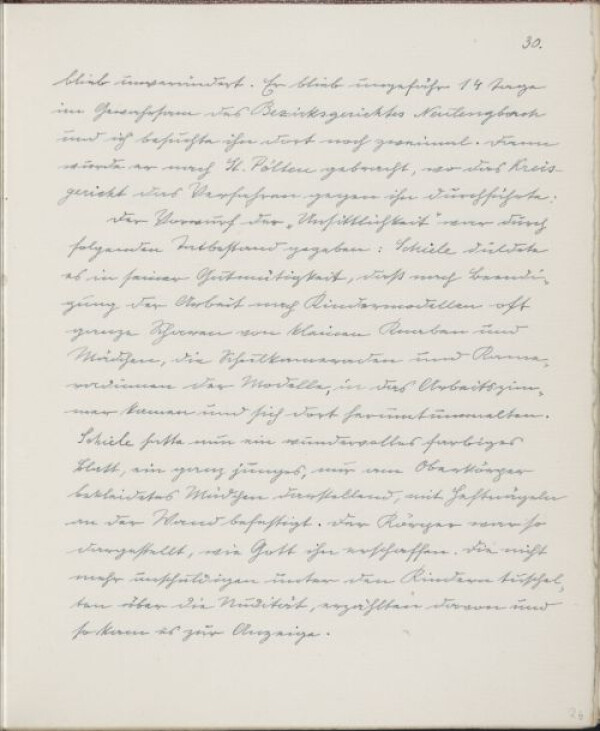 30.
blieb unverändert. Er blieb ungefähr 14 Tage
im Gewahrsam des Bezirksgerichtes Neulengbach
und ich besuchte ihn dort noch zweimal. Dann
wurde er nach St. Pölten gebracht, wo das Kreis-
gericht das Verfahren gegen ihn durchführte:
Der Vorwurf der „Unsittlichkeit" war durch
folgenden Tatbestand gegeben: Schiele duldete
es in seiner Gutmütigkeit, daß nach Beendi-
gung der Arbeit nach Kindermodellen oft
ganze Scharen von kleinen Knaben und
Mädchen, die Schulkameraden und Kame-
radinnen der Modelle, in das Arbeitszim-
mer kamen und sich dort herumtummelten.
Schiele hatte nun ein wundervolles farbiges
Blatt, ein ganz junges, nur am Oberkörper
bekleidetes Mädchen darstellend, mit Heftnägeln
an der Wand befestigt. Der Körper war so
dargestellt, wie Gott ihn erschaffen. Die nicht
mehr unschuldigen unter den Kindern tuschel-
ten über die Nudität, erzählten davon und
so kam es zur Anzeige.